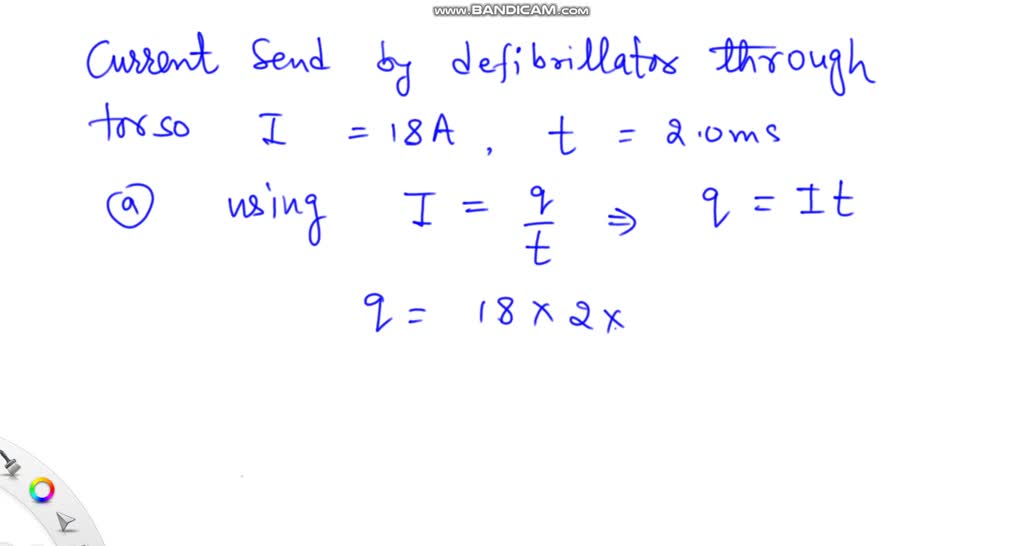 www.BANDICAM.com
Current Send by defibrillator through
torso I = 18A, t = 2.0ms
(a) using I = q/t ⇒ q = It
q = 18 × 2 ×